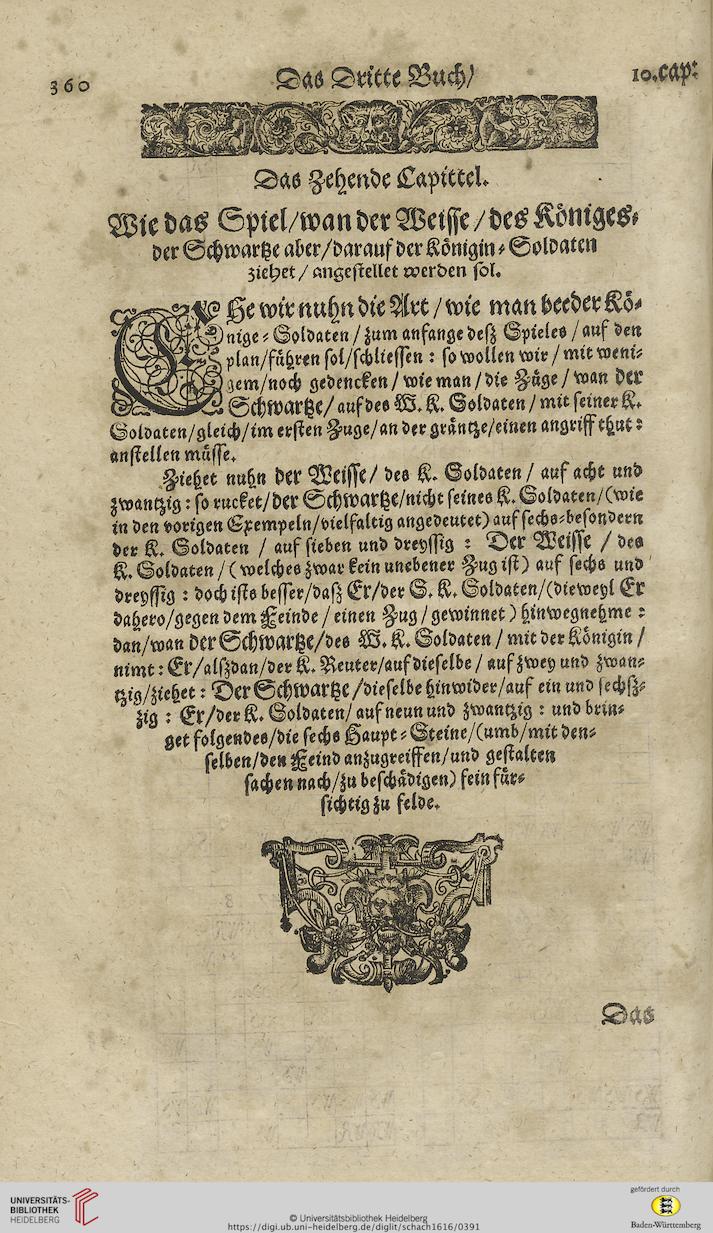 360
Das Dritte Buch/
10.cap:
Das Zehende Capittel.
Wie das Spiel/wan der Weisse/des Königes⸗
der Schwartze aber/darauf der Königin⸗Soldaten
ziehet/angestellet werden sol.
EHe wir nuhn die Art/wie man beeder Kö⸗
nige⸗Soldaten/zum anfange desz Spieles/auf den
plan/führen sol/schliessen: so wollen wir/mit weni⸗
gem/noch gedencken/wie man/die Züge/wan der
Schwartze/auf des W. K. Soldaten/mit seiner K.
Soldaten/gleich/im ersten Zuge/an der gräntze/einen angriff thut:
anstellen müsse.
Ziehet nuhn der Weisse/des K. Soldaten/auf acht und
zwantzig: so rucket/der Schwartze/nicht seines K. Soldaten/(wie
in den vorigen Exempeln/vielfaltig angedeutet) auf sechs⸗besondern
der K. Soldaten/auf sieben und dreyssig: Der Weisse/des
K. Soldaten/(welches zwar kein unebener Zug ist) auf sechs und
dreyssig: doch ists besser/dasz Er/der S. K. Soldaten/(dieweyl Er
dahero/gegen dem Feinde/einen Zug/gewinnet) hinwegnehme:
dan/wan der Schwartze/des W. K. Soldaten/mit der Königin/
nimt: Er/alszdan/der K. Reuter/auf dieselbe/auf zwey und zwan⸗
tzig/ziehet: Der Schwartze/dieselbe hinwider/auf ein und sechsz⸗
zig: Er/der K. Soldaten/auf neun und zwantzig: und brin⸗
get folgendes/die sechs Haupt⸗Steine/(umb/mit den⸗
selben/den Feind anzugreiffen/und gestalten
sachen nach/zu beschädigen) fein für⸗
sichtig zu felde.
Das
UNIVERSITÄTS-
BIBLIOTHEK
HEIDELBERG
© Universitätsbibliothek Heidelberg
https://digi.ub.uni-heidelberg.de/diglit/schach1616/0391
gefördert durch
Baden-Württemberg